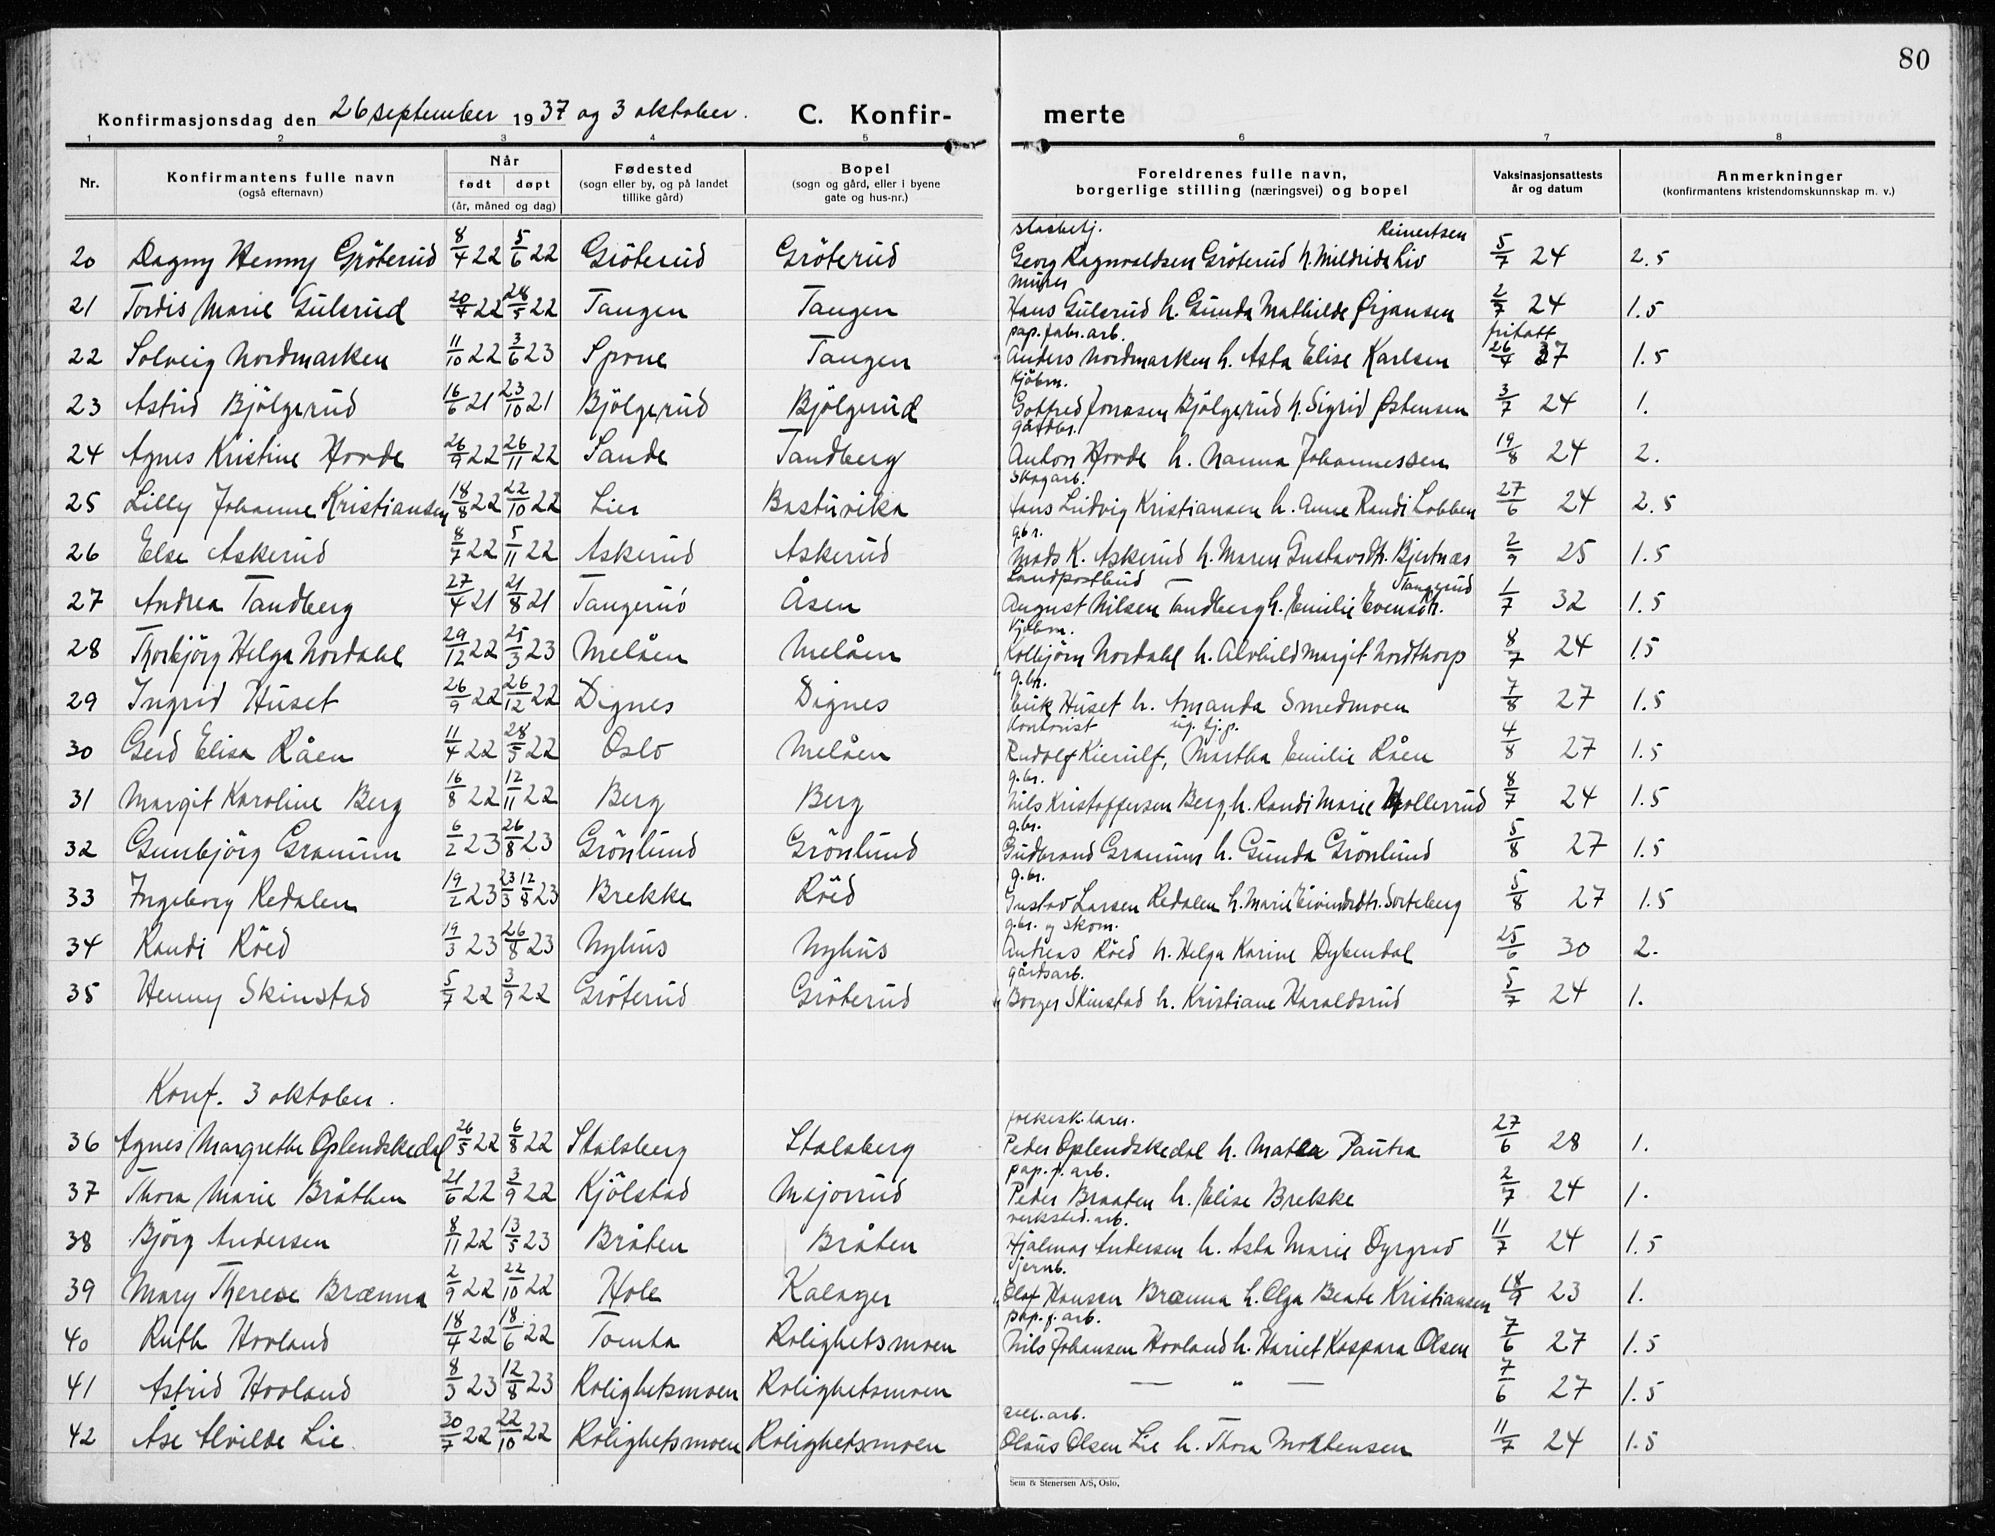 80
Konfirmasjonsdag den 26 september 1937 og 3 oktober. C. Konfir- merte
1 2 3 4 5 6 7 8
Nr. Konfirmantens fulle navn (også efternavn) Når født døpt (år, måned og dag) Fødested (sogn eller by, og på landet tillike gård) Bopel (sogn og gård, eller i byene gate og hus-nr.) Foreldrenes fulle navn, borgerlige stilling (næringsvei) og bopel Vaksinasjonsattests år og datum Anmerkninger (konfirmantens kristendomskunnskap m. v.)
Reinertsen
20 Dagny Henny Gröterud 8/4 22 5/6 22 Gröterud Gröterud Georg Ragnvaldsen Gröterud h. Mildrida Liv 5/7 24 2.5
murer
21 Tordis Marie Gulsrud 20/7 22 28/5 22 Tangen Tangen Hans Gulsrud h. Gunda Mathilde Ørjansen 2/7 24 1.5
pap.fabr.arb. fritatt
22 Solveig Nordmarken 11/10 22 3/6 23 Spone Tangen Anders Nordmarken h. Asta Elise Karlsen 26/4 37 1.5
Kjöbm.
23 Astrid Bjölgerud 16/6 21 23/10 21 Bjölgerud Bjölgerud Gotfred Jonasen Bjölgerud h. Sigrid Østensen 3/7 24 1.
gårdbr.
24 Agnes Kristine Horde 26/9 22 26/11 22 Sande Tandberg Anton Horde h. Nanna Johannessen 19/8 24 2.
Skogarb.
25 Lilly Johanne Kristiansen 18/8 22 22/10 22 Lier Basturika Hans Ludvig Kristiansen h. Anne Randi Lobben 27/6 24 2.5
gbr.
26 Else Askerud 8/7 22 5/11 22 Askerud Askerud Mads K. Askerud h. Maren Gustavsdtr. Bjertnæs 2/9 25 1.5
Landpostbud — Tangerud
27 Andrea Tandberg 27/4 21 21/8 21 Tangerud Åsen August Nilsen Tandberg h. Emilie Evensdtr. 1/7 32 1.5
Kjöbm.
28 Thorbjörg Helga Nordahl 29/12 22 25/3 23 Melåen Melåen Kolbjörn Nordahl h. Alvhild Margit Nordthorp 8/7 24 1.5
g.br.
29 Ingrid Huset 26/9 22 26/12 22 Dignes Dignes Erik Huset h. Amanda Smedmoen 7/8 27 1.5
Kontorist ug. tj.p.
30 Gerd Elisa Råen 11/4 22 28/5 22 Oslo Melåen Rudolf Kierulf, Martha Emilie Råen 4/8 27 1.5
g.br.
31 Margit Karoline Berg 16/8 22 12/11 22 Berg Berg Nils Kristoffersen Berg, h. Randi Marie Hollerrud 8/7 24 1.5
g.br.
32 Gunbjörg Granum 6/2 23 26/8 23 Grönlund Grönlund Gudbrand Granum h. Gunda Grönlund 5/8 27 1.5
g.br.
33 Ingeborg Redalen 19/2 23 23/3 12/8 23 Brekke Röed Gustav Larsen Redalen h. Marie Eivindsdtr. Sorteberg 5/8 27 1.5
g.br. og skom.
34 Randi Röed 19/3 23 26/8 23 Nyhus Nyhus Andreas Röed h. Helga Karine Dybendal 25/6 30 2.
gårdsarb.
35 Henny Skinstad 5/7 22 3/9 22 Gröterud Gröterud Borger Skinstad h. Kristiane Haraldsrud 5/7 24 1.
Konf. 3 oktober.
folkesk.lærer.
36 Agnes Margrethe Oplendskedal 26/5 22 6/8 22 Stalsberg Stalsberg Peder Oplendskedal h. Matea Pautra 27/6 28 1.
pap.f.arb.
37 Thora Marie Bråthen 21/6 22 3/9 22 Kjölstad Majorrud Peder Braaten h. Elise Brekke 2/7 24 1.
verksted.arb.
38 Björg Andersen 8/11 22 13/5 23 Bråten Bråten Hjalmar Andersen h. Asta Marie Dyrgrad 11/7 24 1.5
Jernb.
39 Mary Therese Brænna 2/9 22 22/10 22 Hole Kalager Olaf Hansen Brænna h. Olga Beate Kristiansen 18/9 23 1.
pap.f.arb.
40 Ruth Hovland 18/4 22 18/6 22 Tomta Rolighetsmoen Nils Johansen Hovland h. Hariet Kaspara Olsen 7/6 27 1.5
41 Astrid Hovland 8/3 23 12/8 23 Rolighetsmoen Rolighetsmoen — " — 7/6 27 1.5
cell.arb.
42 Åse Alvilde Lie 30/7 22 22/10 22 Rolighetsmoen Rolighetsmoen Olaus Olsen Lie h. Thora Mortensen 11/7 24 1.5
Sem & Stenersen A/S, Oslo.